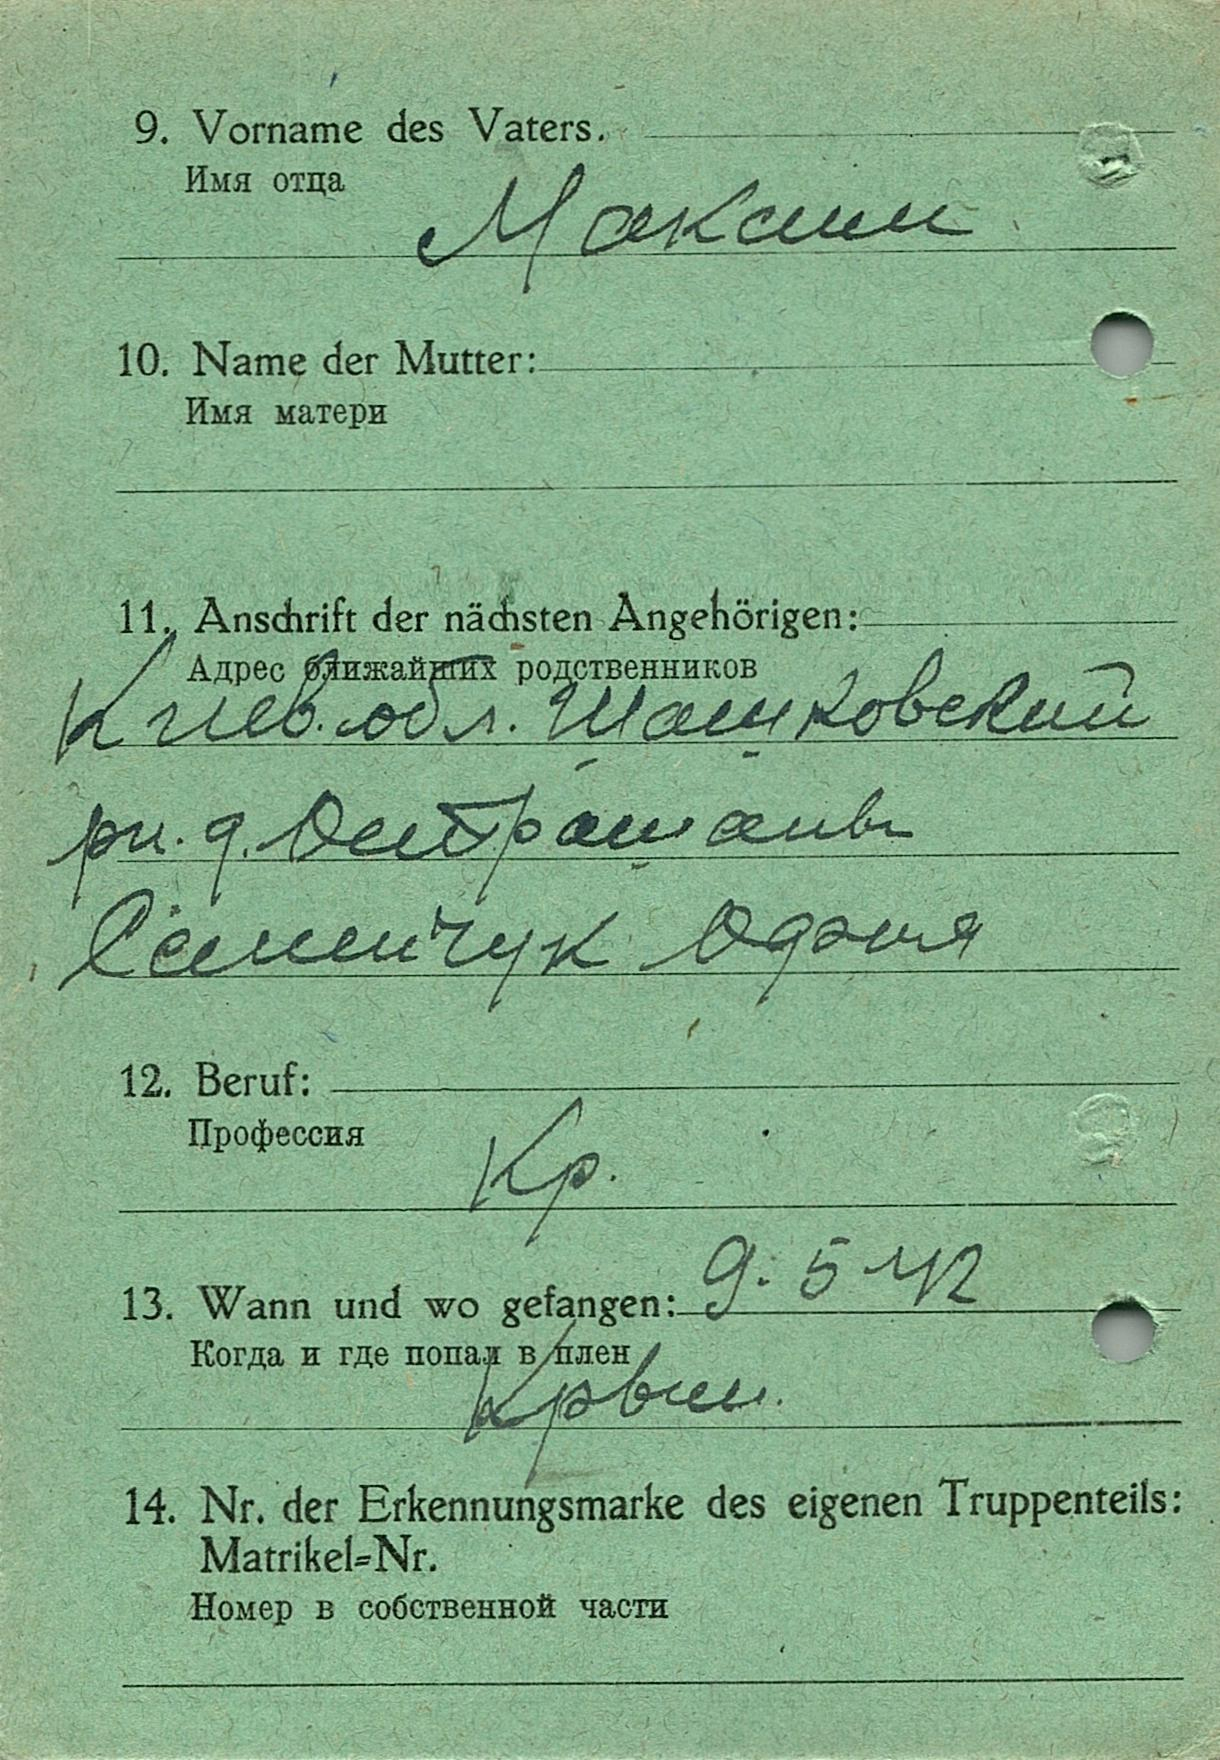 9. Vorname des Vaters.
Имя отца
Максим
10. Name der Mutter:
Имя матери
11. Anschrift der nächsten Angehörigen:
Адрес ближайших родственников
Киев. обл. Шашковский
рн. д.
Семенчук
12. Beruf:
Профессия
Кр.
13. Wann und wo gefangen: 9. 5 42
Когда и где попал в плен
14. Nr. der Erkennungsmarke des eigenen Truppenteils:
Matrikel=Nr.
Номер в собственной части